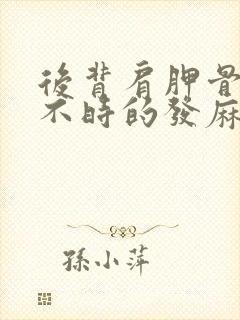 後背肩胛骨
不時的發麻
孫小萍